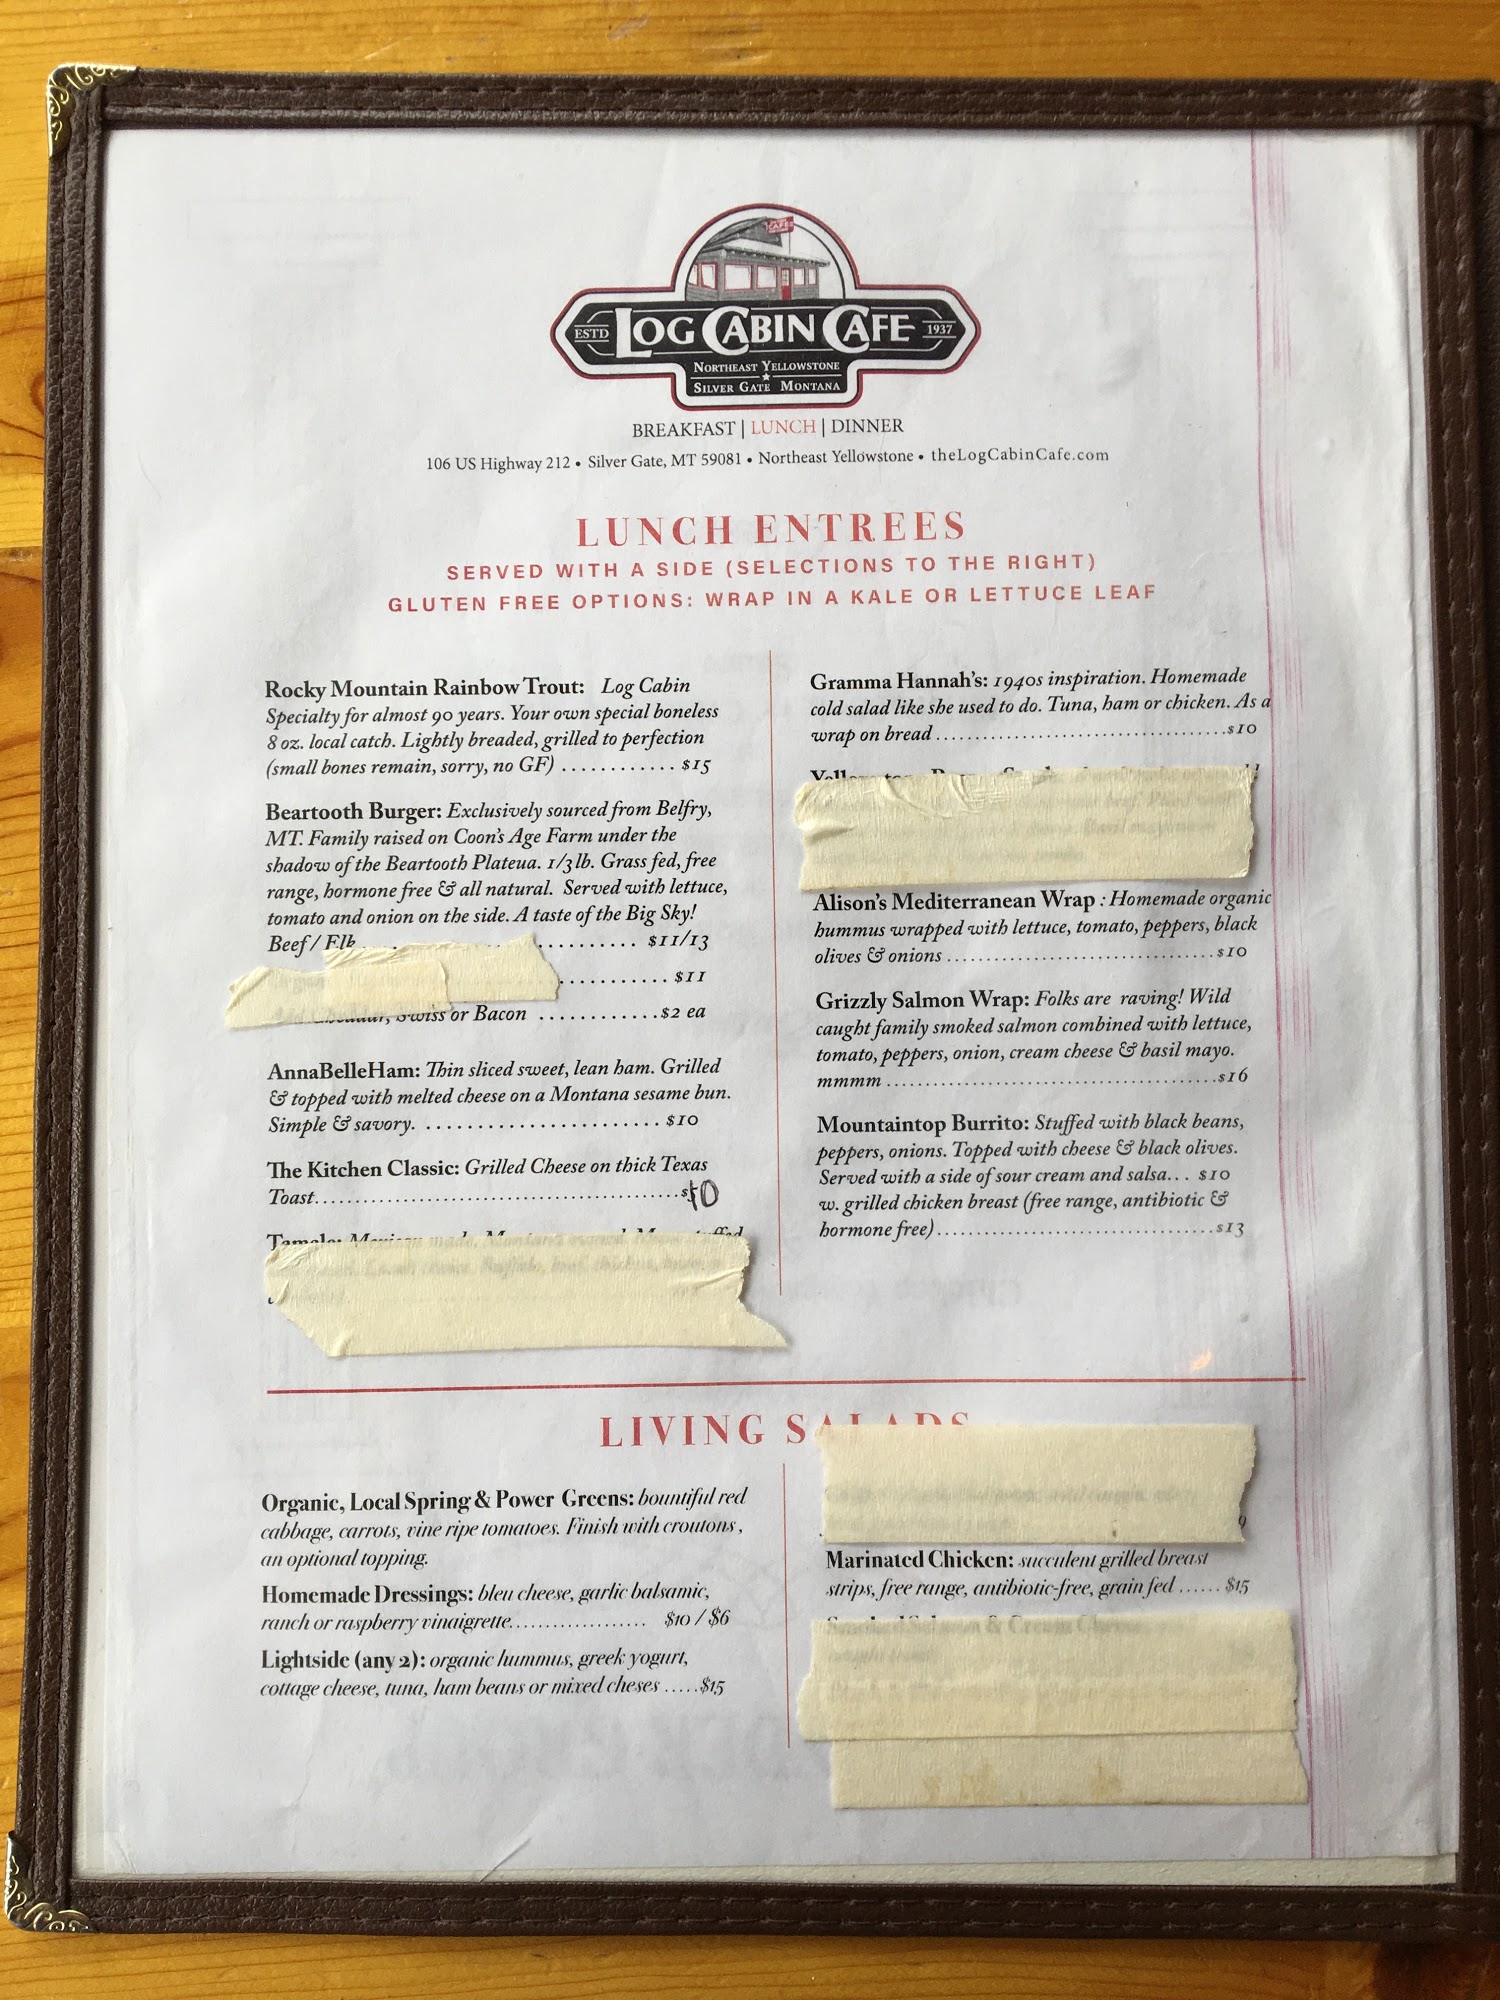 CAFE
ESTD LOG CABIN CAFE 1937
NORTHEAST YELLOWSTONE
SILVER GATE MONTANA
BREAKFAST | LUNCH | DINNER
106 US Highway 212 • Silver Gate, MT 59081 • Northeast Yellowstone • theLogCabinCafe.com
LUNCH ENTREES
SERVED WITH A SIDE (SELECTIONS TO THE RIGHT)
GLUTEN FREE OPTIONS: WRAP IN A KALE OR LETTUCE LEAF
Rocky Mountain Rainbow Trout: Log Cabin
Specialty for almost 90 years. Your own special boneless
8 oz. local catch. Lightly breaded, grilled to perfection
(small bones remain, sorry, no GF) ............ $15
Beartooth Burger: Exclusively sourced from Belfry,
MT. Family raised on Coon's Age Farm under the
shadow of the Beartooth Plateua. 1/3 lb. Grass fed, free
range, hormone free & all natural. Served with lettuce,
tomato and onion on the side. A taste of the Big Sky!
Beef / Elk .......... $11/13
........... $11
Add Cheddar, Swiss or Bacon ............$2 ea
AnnaBelleHam: Thin sliced sweet, lean ham. Grilled
& topped with melted cheese on a Montana sesame bun.
Simple & savory. ....................... $10
The Kitchen Classic: Grilled Cheese on thick Texas
Toast..................................................$10
Tamale: Mexican made, Montana
Gramma Hannah's: 1940s inspiration. Homemade
cold salad like she used to do. Tuna, ham or chicken. As a
wrap on bread .......................................$10
Alison's Mediterranean Wrap : Homemade organic
hummus wrapped with lettuce, tomato, peppers, black
olives & onions ....................................$10
Grizzly Salmon Wrap: Folks are raving! Wild
caught family smoked salmon combined with lettuce,
tomato, peppers, onion, cream cheese & basil mayo.
mmmm .............................................$16
Mountaintop Burrito: Stuffed with black beans,
peppers, onions. Topped with cheese & black olives.
Served with a side of sour cream and salsa... $10
w. grilled chicken breast (free range, antibiotic &
hormone free)......................................$13
LIVING SALADS
Organic, Local Spring & Power Greens: bountiful red
cabbage, carrots, vine ripe tomatoes. Finish with croutons,
an optional topping.
Homemade Dressings: bleu cheese, garlic balsamic,
ranch or raspberry vinaigrette.................... $10 / $6
Lightside (any 2): organic hummus, greek yogurt,
cottage cheese, tuna, ham beans or mixed cheses .....$15
9
Marinated Chicken: succulent grilled breast
strips, free range, antibiotic-free, grain fed ...... $15
Smoked Salmon & Cream Cheese